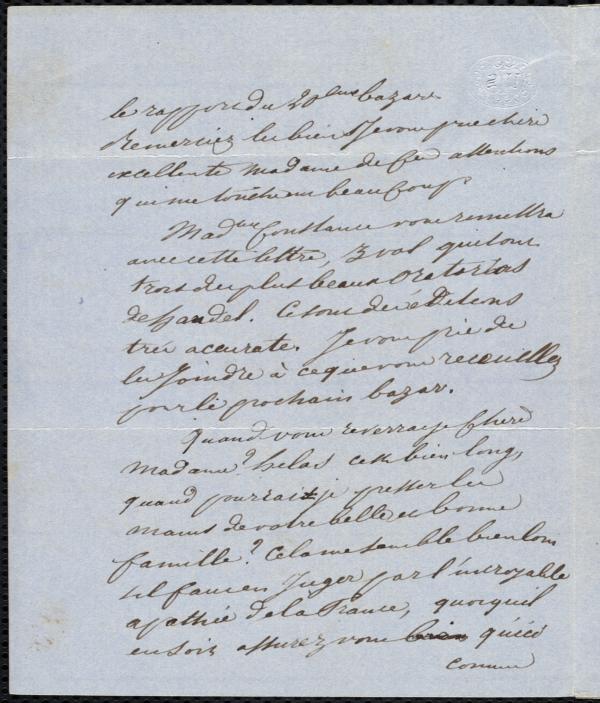 le rapport du 20eme bazar.
Remerciez les bien Je vous prie chère
excellente Madame de ces attentions
qui me touchent beaucoup
Madme Constance vous remettra
avec cette lettre, 3 vol qui sont
trois des plus beaux Oratorios
de Handel. Ce sont des éditions
très accurate. Je vous prie de
les joindre à ce que vous recueillez
pour le prochain bazar.
Quand vous reverrai je chère
Madame? hélas c'est bien long,
quand pourrai je presser les
mains de votre belle et bonne
famille? Cela me semble bien loin
s'il faut en Juger par l'incroyable
apathie de la France, quoiqu'il
en soit assurez vous bien qu'ici
comme